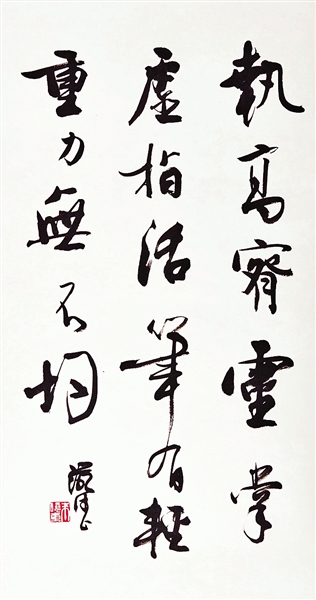 執高靈掌
虛指活筆有輕
重力無不均